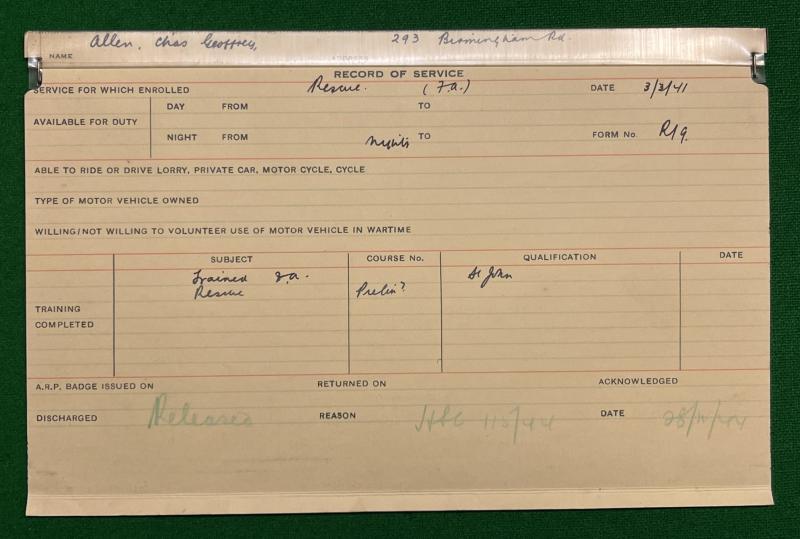 NAME Allen, Chas Geoffrey, 293 Birmingham Rd.
RECORD OF SERVICE
SERVICE FOR WHICH ENROLLED Rescue. (F.A.) DATE 3/3/41
AVAILABLE FOR DUTY
DAY FROM TO
NIGHT FROM Nights TO FORM No. R/9.
ABLE TO RIDE OR DRIVE LORRY, PRIVATE CAR, MOTOR CYCLE, CYCLE
TYPE OF MOTOR VEHICLE OWNED
WILLING/NOT WILLING TO VOLUNTEER USE OF MOTOR VEHICLE IN WARTIME
SUBJECT COURSE No. QUALIFICATION DATE
Trained F.A. St John
Rescue Prelim?
TRAINING
COMPLETED
A.R.P. BADGE ISSUED ON RETURNED ON ACKNOWLEDGED
DISCHARGED Released REASON 115/44 DATE 28/11/44